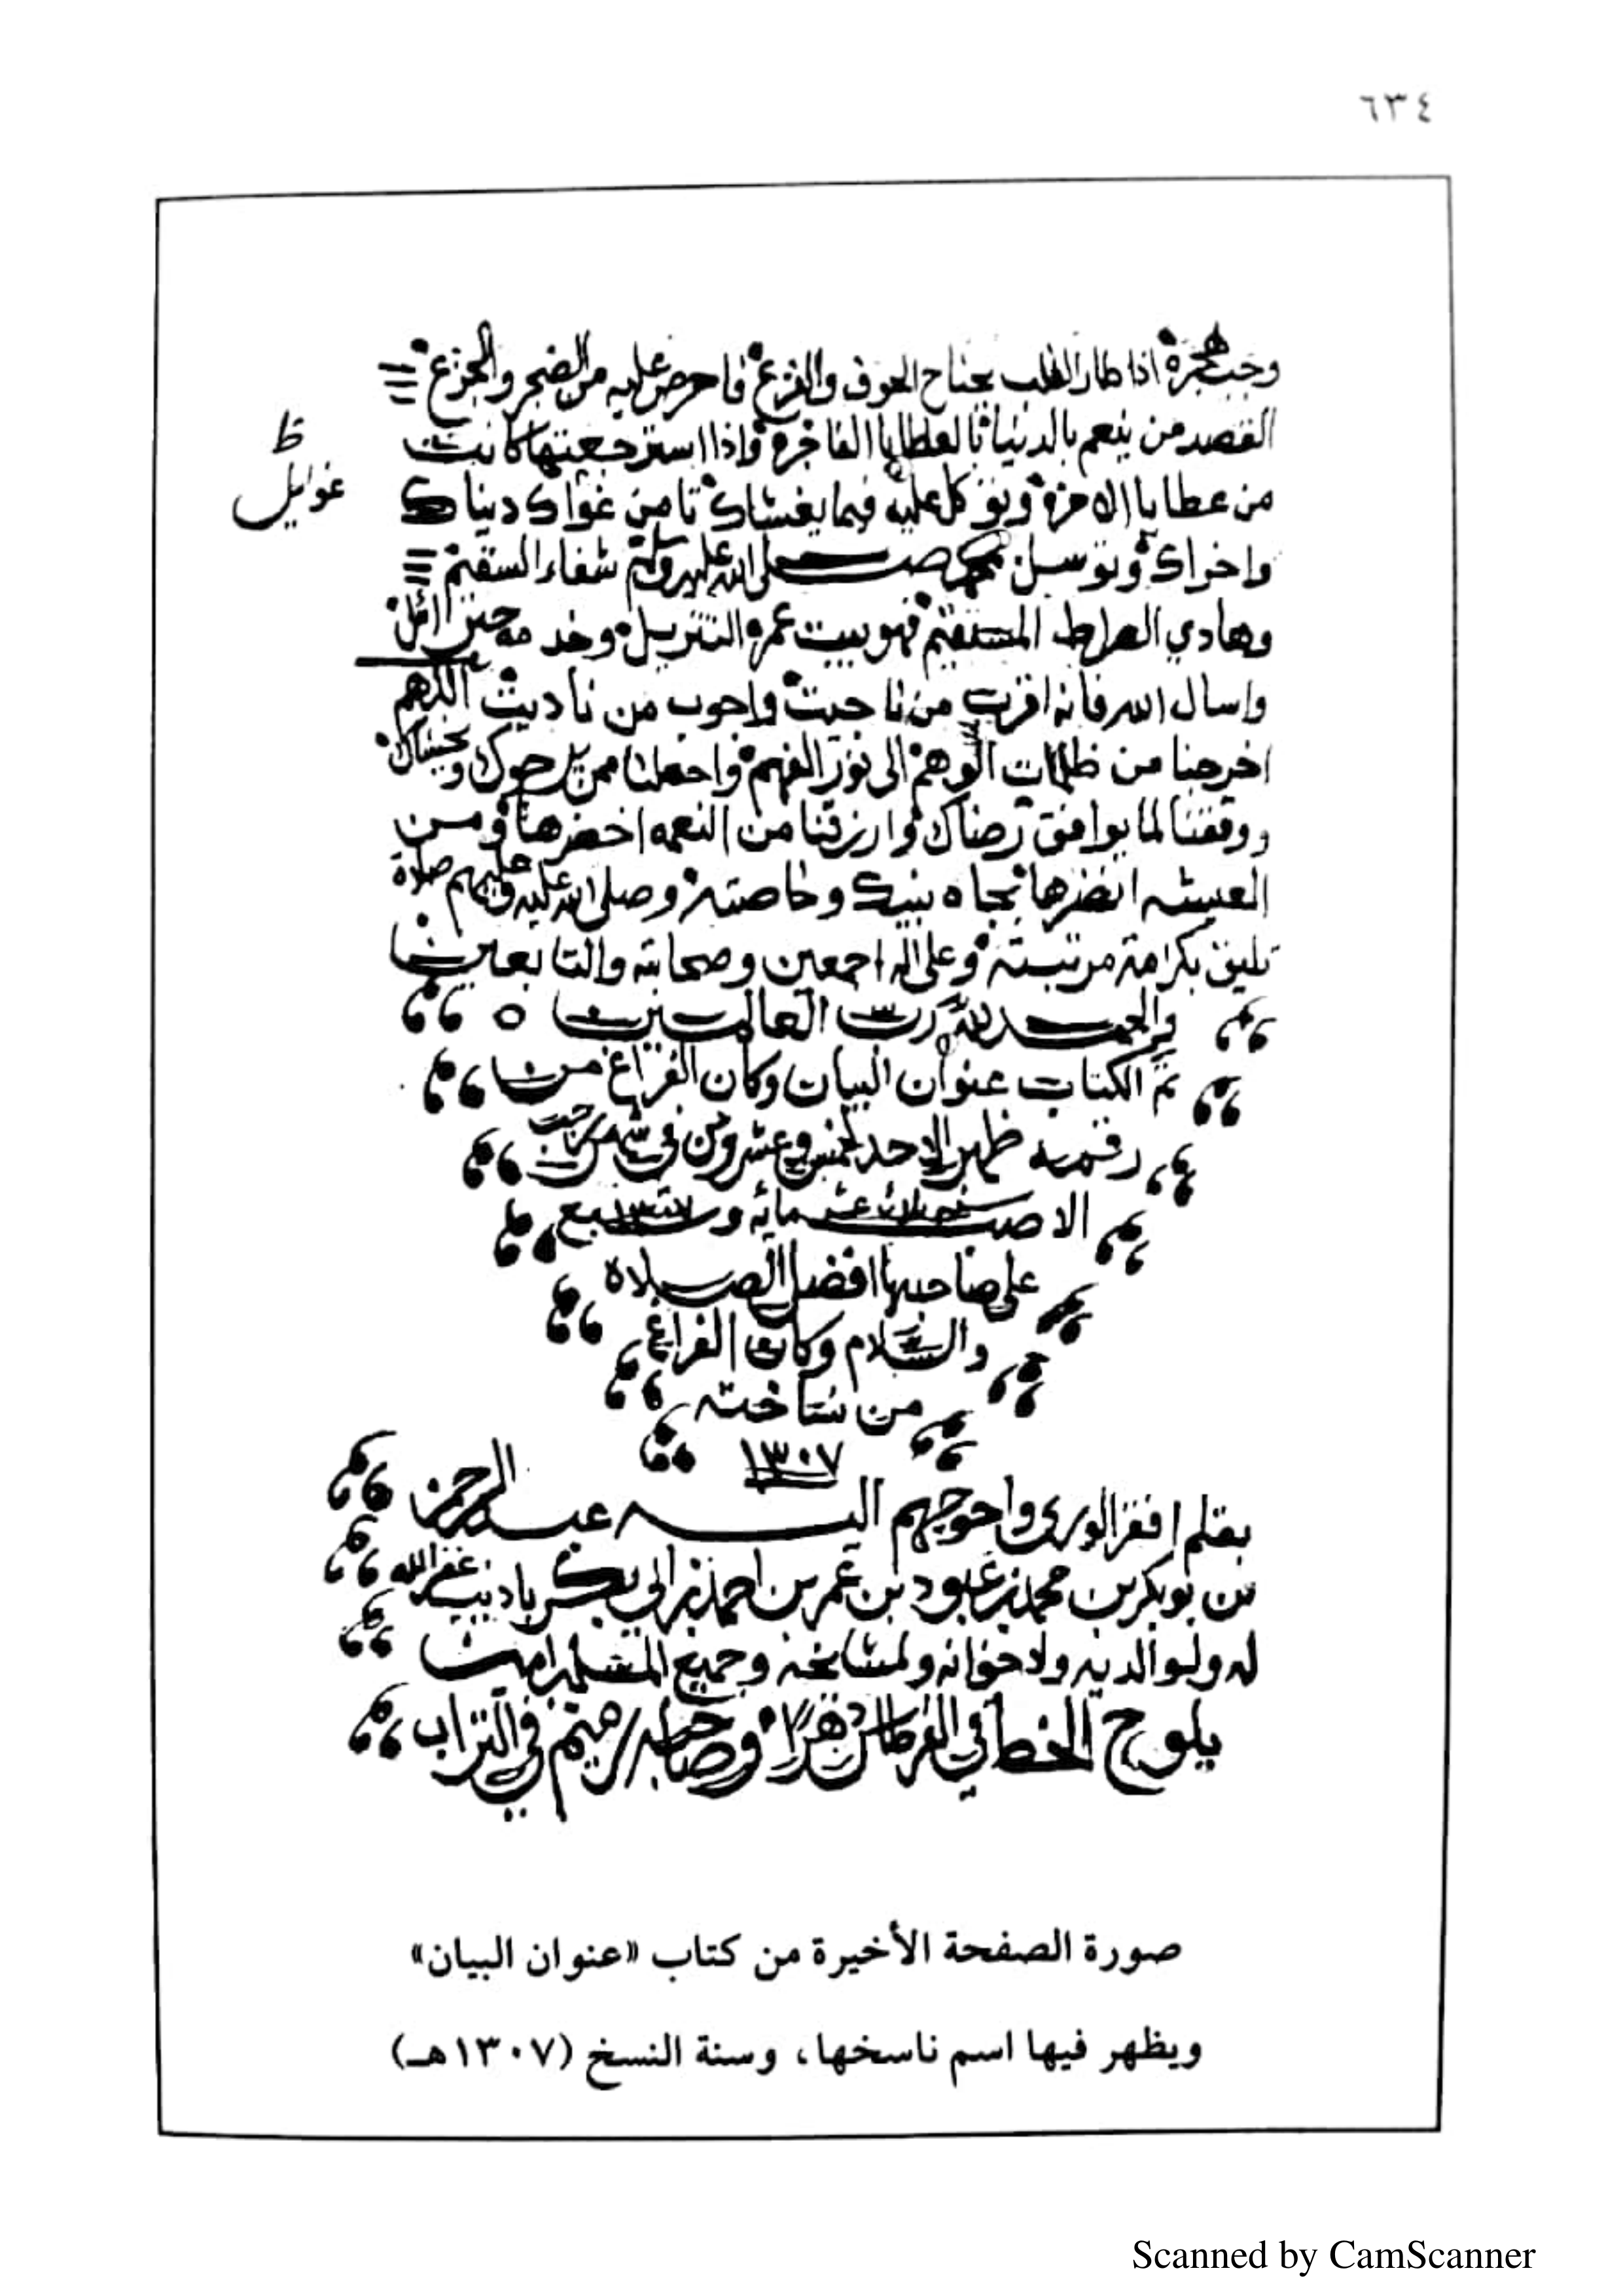 ٦٣٤
وجب هجره اذا طار القلب بجناح الخوف والفزع فاحرص عليه من الضجر والجزع
القصد من ينعم بالدنيا بالعطايا الفاخره واذا استرجعتها كانت
ظ
غوايل
من عطايا الاخره وتوكل عليه فيما يغشاك تامن غواك دنياك
واخراك وتوسل بمحمد صلى الله عليه وسلم شفاء السقيم
وهادي الصراط المستقيم فهو بيت عمره التنزيل وخدمه جبرائيل
واسال الله فانه اقرب من ناجيت واجوب من ناديت اللهم
اخرجنا من ظلمات الوهم الى نور الفهم واجعلنا ممن يرجوك ويخشاك
ووفقنا لما يوافق رضاك وارزقنا من النعمه اخضرها ومن
العيشه انضرها بجاه نبيك وخاصته وصلى الله عليه وعليهم صلاة
تليق بكرامة مرتبته وعلى اله اجمعين وصحابته والتابعين
والحمد لله رب العالمين
تم الكتاب عنوان البيان وكان الفراغ من
رقمه ظهر الاحد لخمس وعشرين في شهر رجب
الاصب سنه ثلاث عشر مائه وسبع ١٣٠٧
على صاحبها افضل الصلاة
والسلام وكان الفراغ
من نساخته
١٣٠٧
بقلم افقر الورى واحوجهم اليه عبد الرحمن
بن بوبكر بن محمد بن عبود بن عمر بن احمد بن ابي بكر باذيب غفر الله
له ولوالديه ولاخوانه ولمشايخه وجميع المسلمين امين
يلوح الخط في القرطاس دهرا وصاحبه رميم في التراب
صورة الصفحة الأخيرة من كتاب «عنوان البيان»
ويظهر فيها اسم ناسخها، وسنة النسخ (١٣٠٧هـ)
Scanned by CamScanner